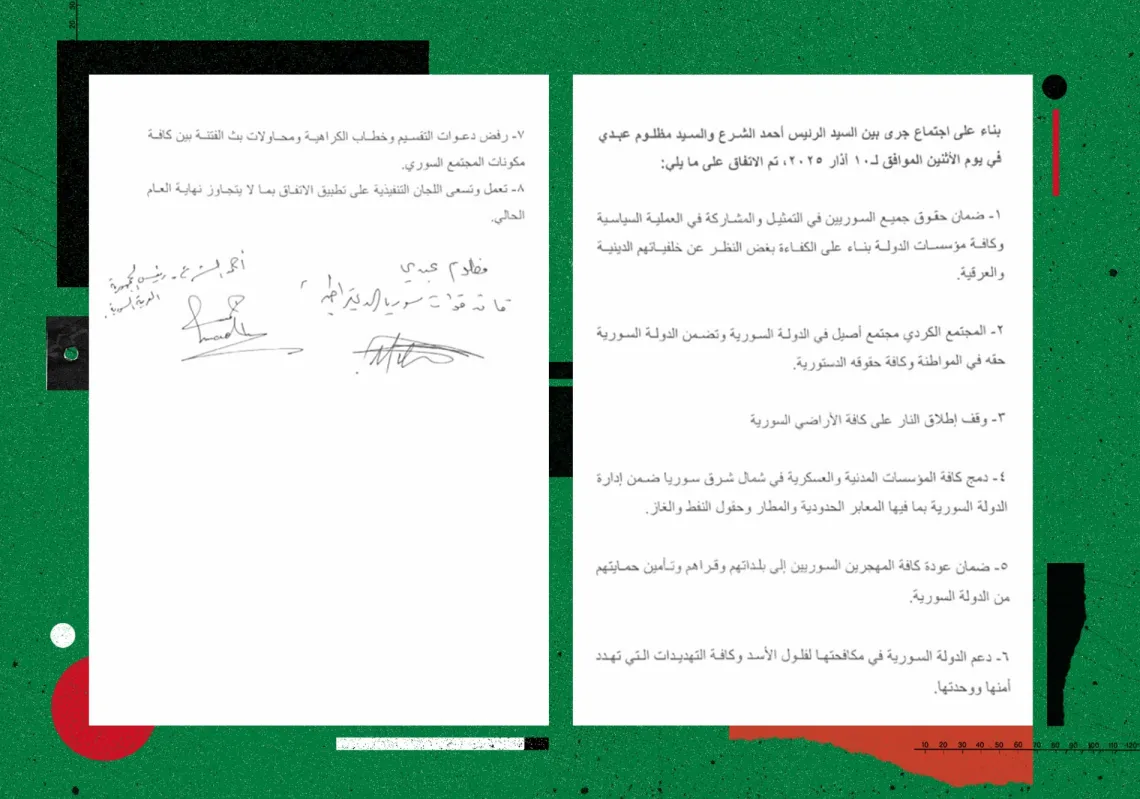 بناء على اجتماع جرى بين السيد الرئيس أحمد الشرع والسيد مظلوم عبدي
في يوم الأثنين الموافق لـ١٠ أذار ٢٠٢٥، تم الاتفاق على ما يلي:
١- ضمان حقوق جميع السوريين في التمثيل والمشاركة في العملية السياسية
وكافة مؤسسات الدولة بناء على الكفاءة بغض النظر عن خلفياتهم الدينية
والعرقية.
٢- المجتمع الكردي مجتمع أصيل في الدولة السورية وتضمن الدولة السورية
حقه في المواطنة وكافة حقوقه الدستورية.
٣- وقف إطلاق النار على كافة الأراضي السورية
٤- دمج كافة المؤسسات المدنية والعسكرية في شمال شرق سوريا ضمن إدارة
الدولة السورية بما فيها المعابر الحدودية والمطار وحقول النفط والغاز.
٥- ضمان عودة كافة المهجرين السوريين إلى بلداتهم وقراهم وتأمين حمايتهم
من الدولة السورية.
٦- دعم الدولة السورية في مكافحتها لفلول الأسد وكافة التهديدات التي تهدد
أمنها ووحدتها.
٧- رفض دعوات التقسيم وخطاب الكراهية ومحاولات بث الفتنة بين كافة
مكونات المجتمع السوري.
٨- تعمل وتسعى اللجان التنفيذية على تطبيق الاتفاق بما لا يتجاوز نهاية العام
الحالي.
مظلوم عبدي
قائد قوات سوريا الديمقراطية
أحمد الشرع - رئيس الجمهورية
العربية السورية.
20 30
10 20 30 40 50 60 70 80 90 100 110 120